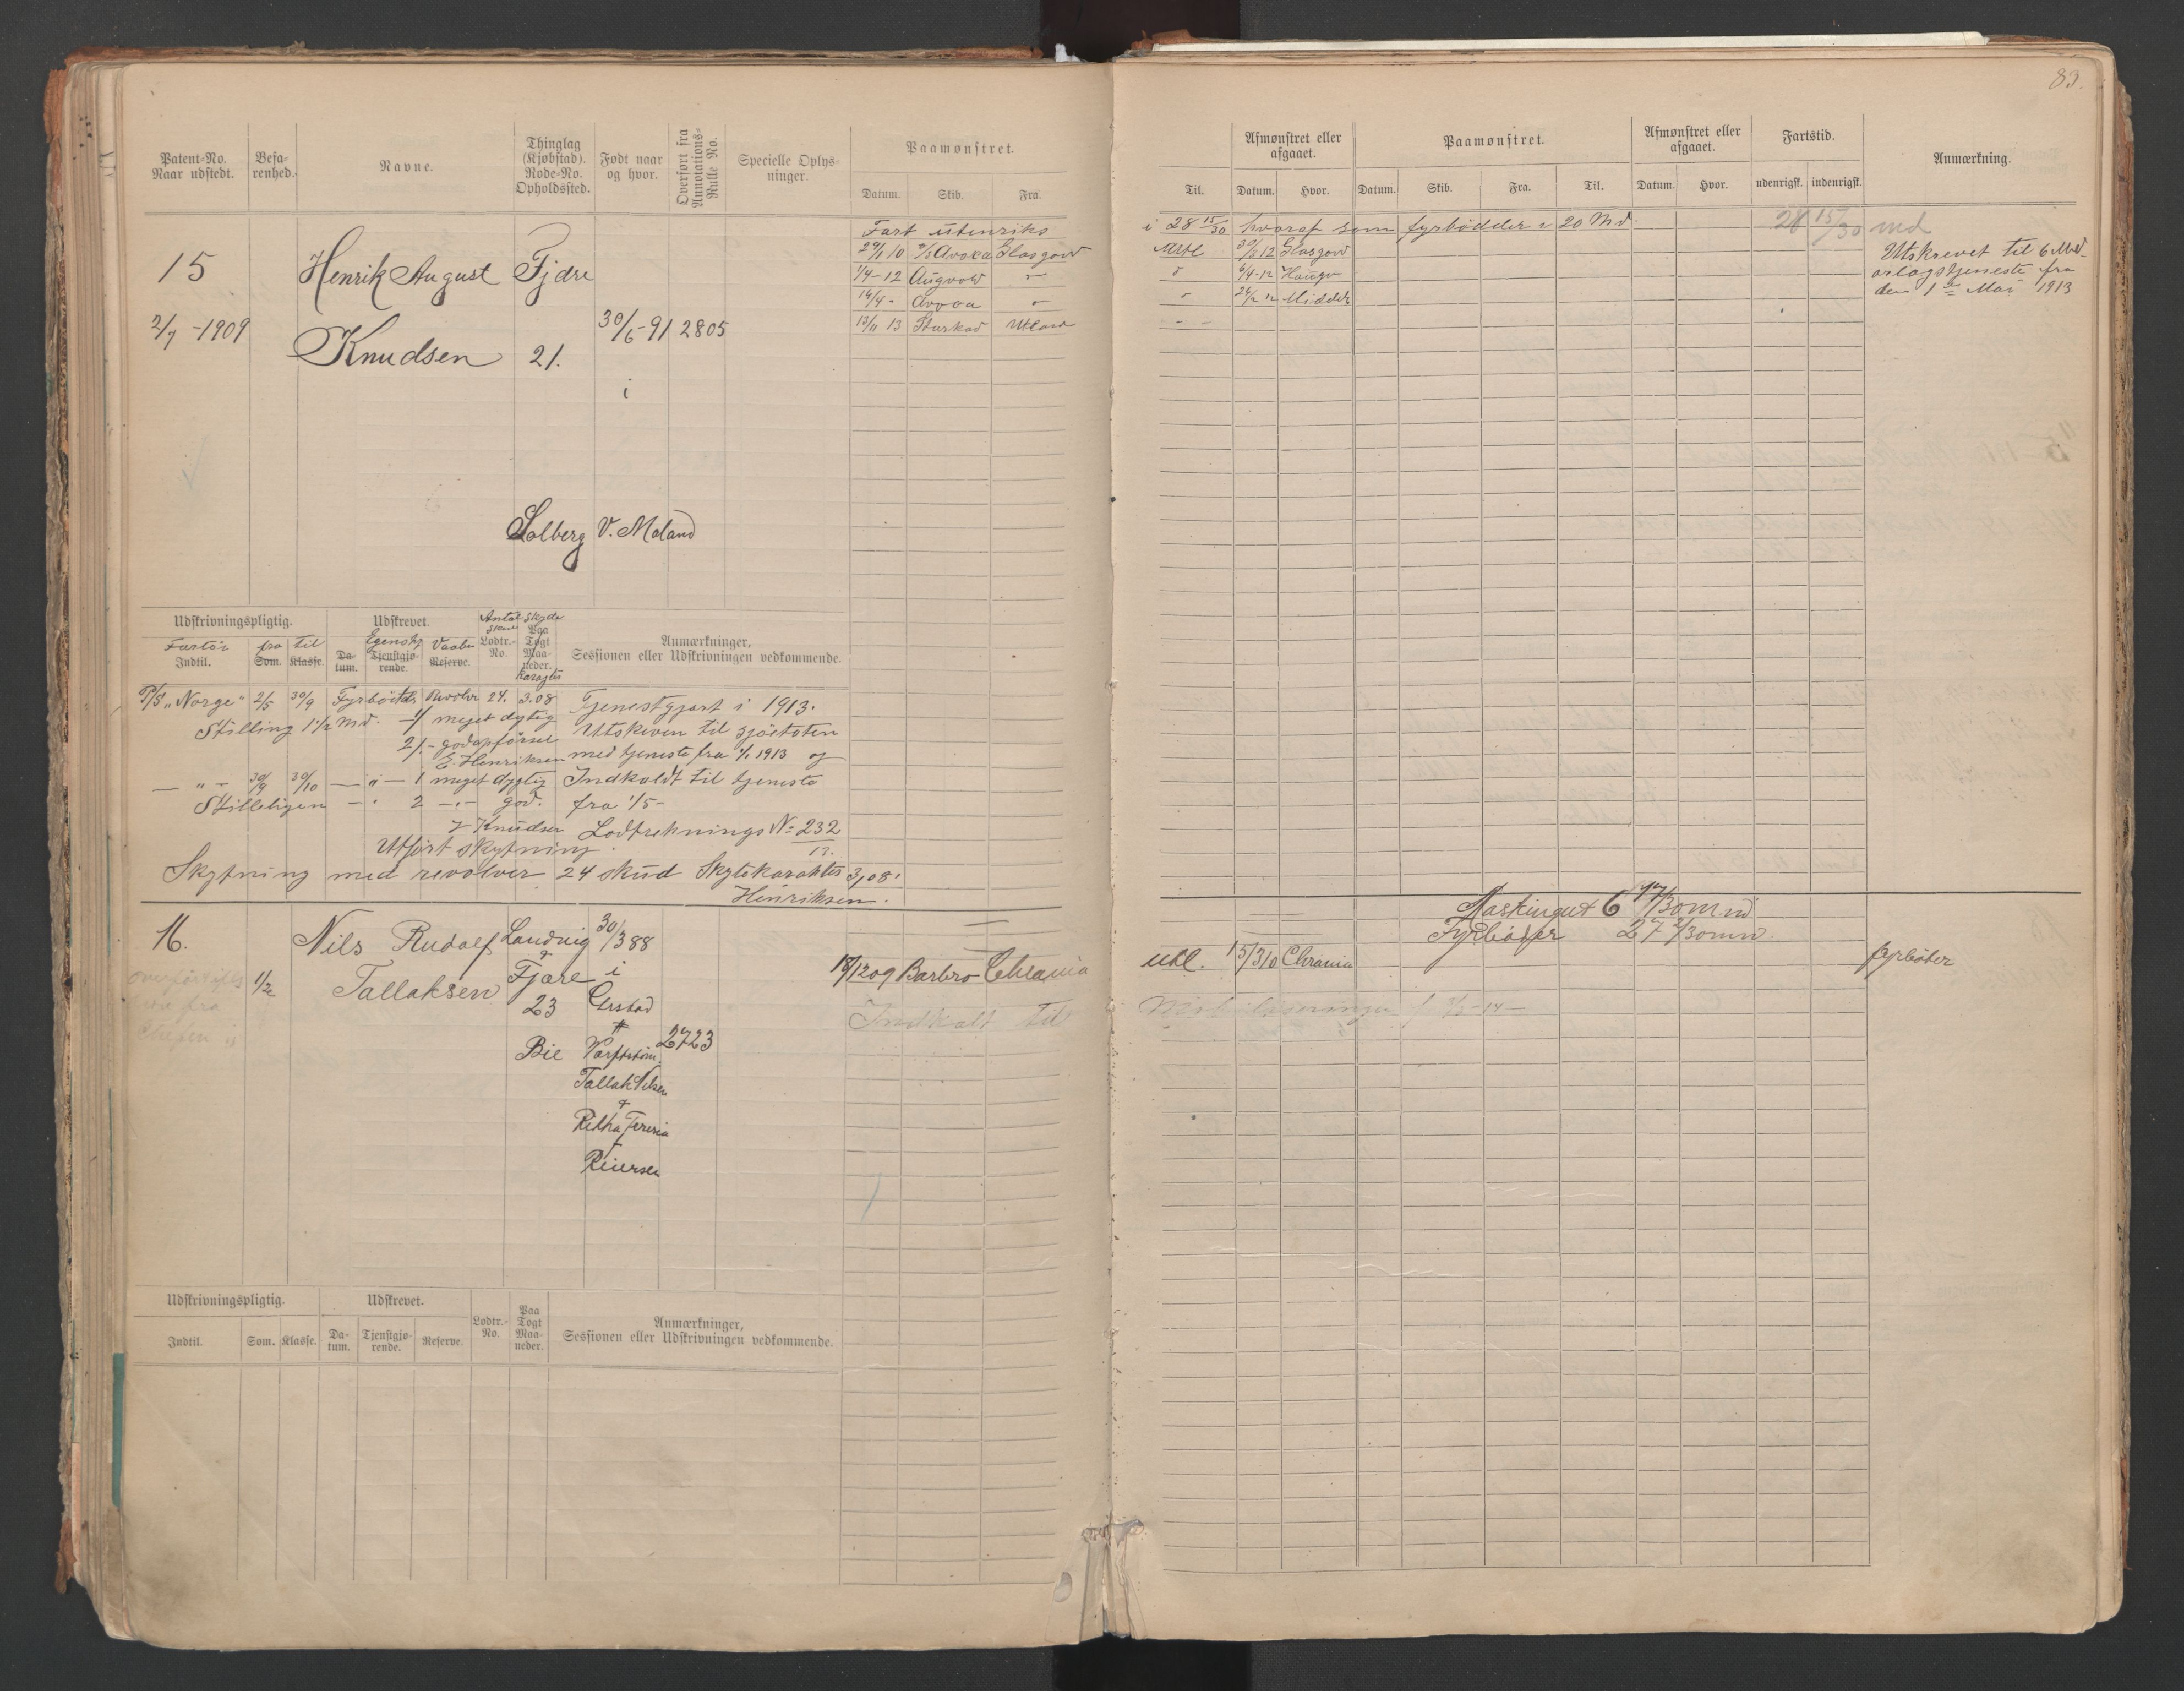 83.
Patent-No. Naar udstedt.
Befa-renhed.
Navne.
Thinglag (Kjøbstad). Rode-No. Opholdssted.
Født naar og hvor.
Overført fra Annotations-Rulle No.
Specielle Oplys-ninger.
Paamønstret.
Datum. Skib. Fra.
Til.
Afmønstret eller afgaaet.
Datum. Hvor.
Paamønstret.
Datum. Skib. Fra. Til.
Afmønstret eller afgaaet.
Datum. Hvor.
Fartstid.
udenrigsk. indenrigsk.
Anmærkning.
Fart utenriks i 28 15/30 hvoraf som fyrbødder i 20 Md. 28 15/30 md
15 Henrik August Fjære
29/1 10 Avoca Glasgow
1/4-12 Augvold "
14/4 - Avoca "
13/11 13 Sturkad
30/3 12 Glasgow
6/4-12
Utskrevet til 6 Md
orlogstjeneste fra
den 1ste Mai 1913
2/7-1909 Knudsen 21. 30/6-91 2805
i
Solberg V. Moland
Udskrivningspligtig. Udskrevet. Antal Skud Skyde
Fartøi fra til Egensk. Vaaben Lodtr.-No. Paa Togt Maa-neder. Karakter
Indtil. Som. Klasse. Da-tum. Tjenstgjø-rende. Reserve.
Anmærkninger, Sessionen eller Udskrivningen vedkommende.
P/S "Norge" 2/5 30/9 Fyrbøder Revolver 24. 3.08 Tjenestgjort i 1913.
Stilling 1 1/2 Md. 1/ meget dygtig Utskreven til sjöetaten
2/- god opførsel med tjeneste fra 1/1 1913 og
E. Henriksen
— " — 30/9 30/10 — " — 1 meget dygtig Indkaldt til tjeneste
2 — " — god. fra 1/5-
Knudsen Lodtreknings No 232
13.
Utført skytning.
Skytning med revolver 24 skud Skytekarakter 3,08.
Henriksen.
16. Nils Rudolf Landvig 30/3 88
Tallaksen Fjære i
1/2
23
Bie 2723
Tallak Nilsen
+
Reiersen
18/12 09 Barbro Chrania
Indkalt til
Maskingut 6 17/30 mnd
Fyrbøder 27 2/30 mn.
Udl. 15/3 10 Chrania
fyrbøter
Udskrivningspligtig. Udskrevet.
Indtil. Som. Klasse. Da-tum. Tjenstgjø-rende. Reserve.
Lodtr.-No.
Paa Togt Maa-neder.
Anmærkninger, Sessionen eller Udskrivningen vedkommende.